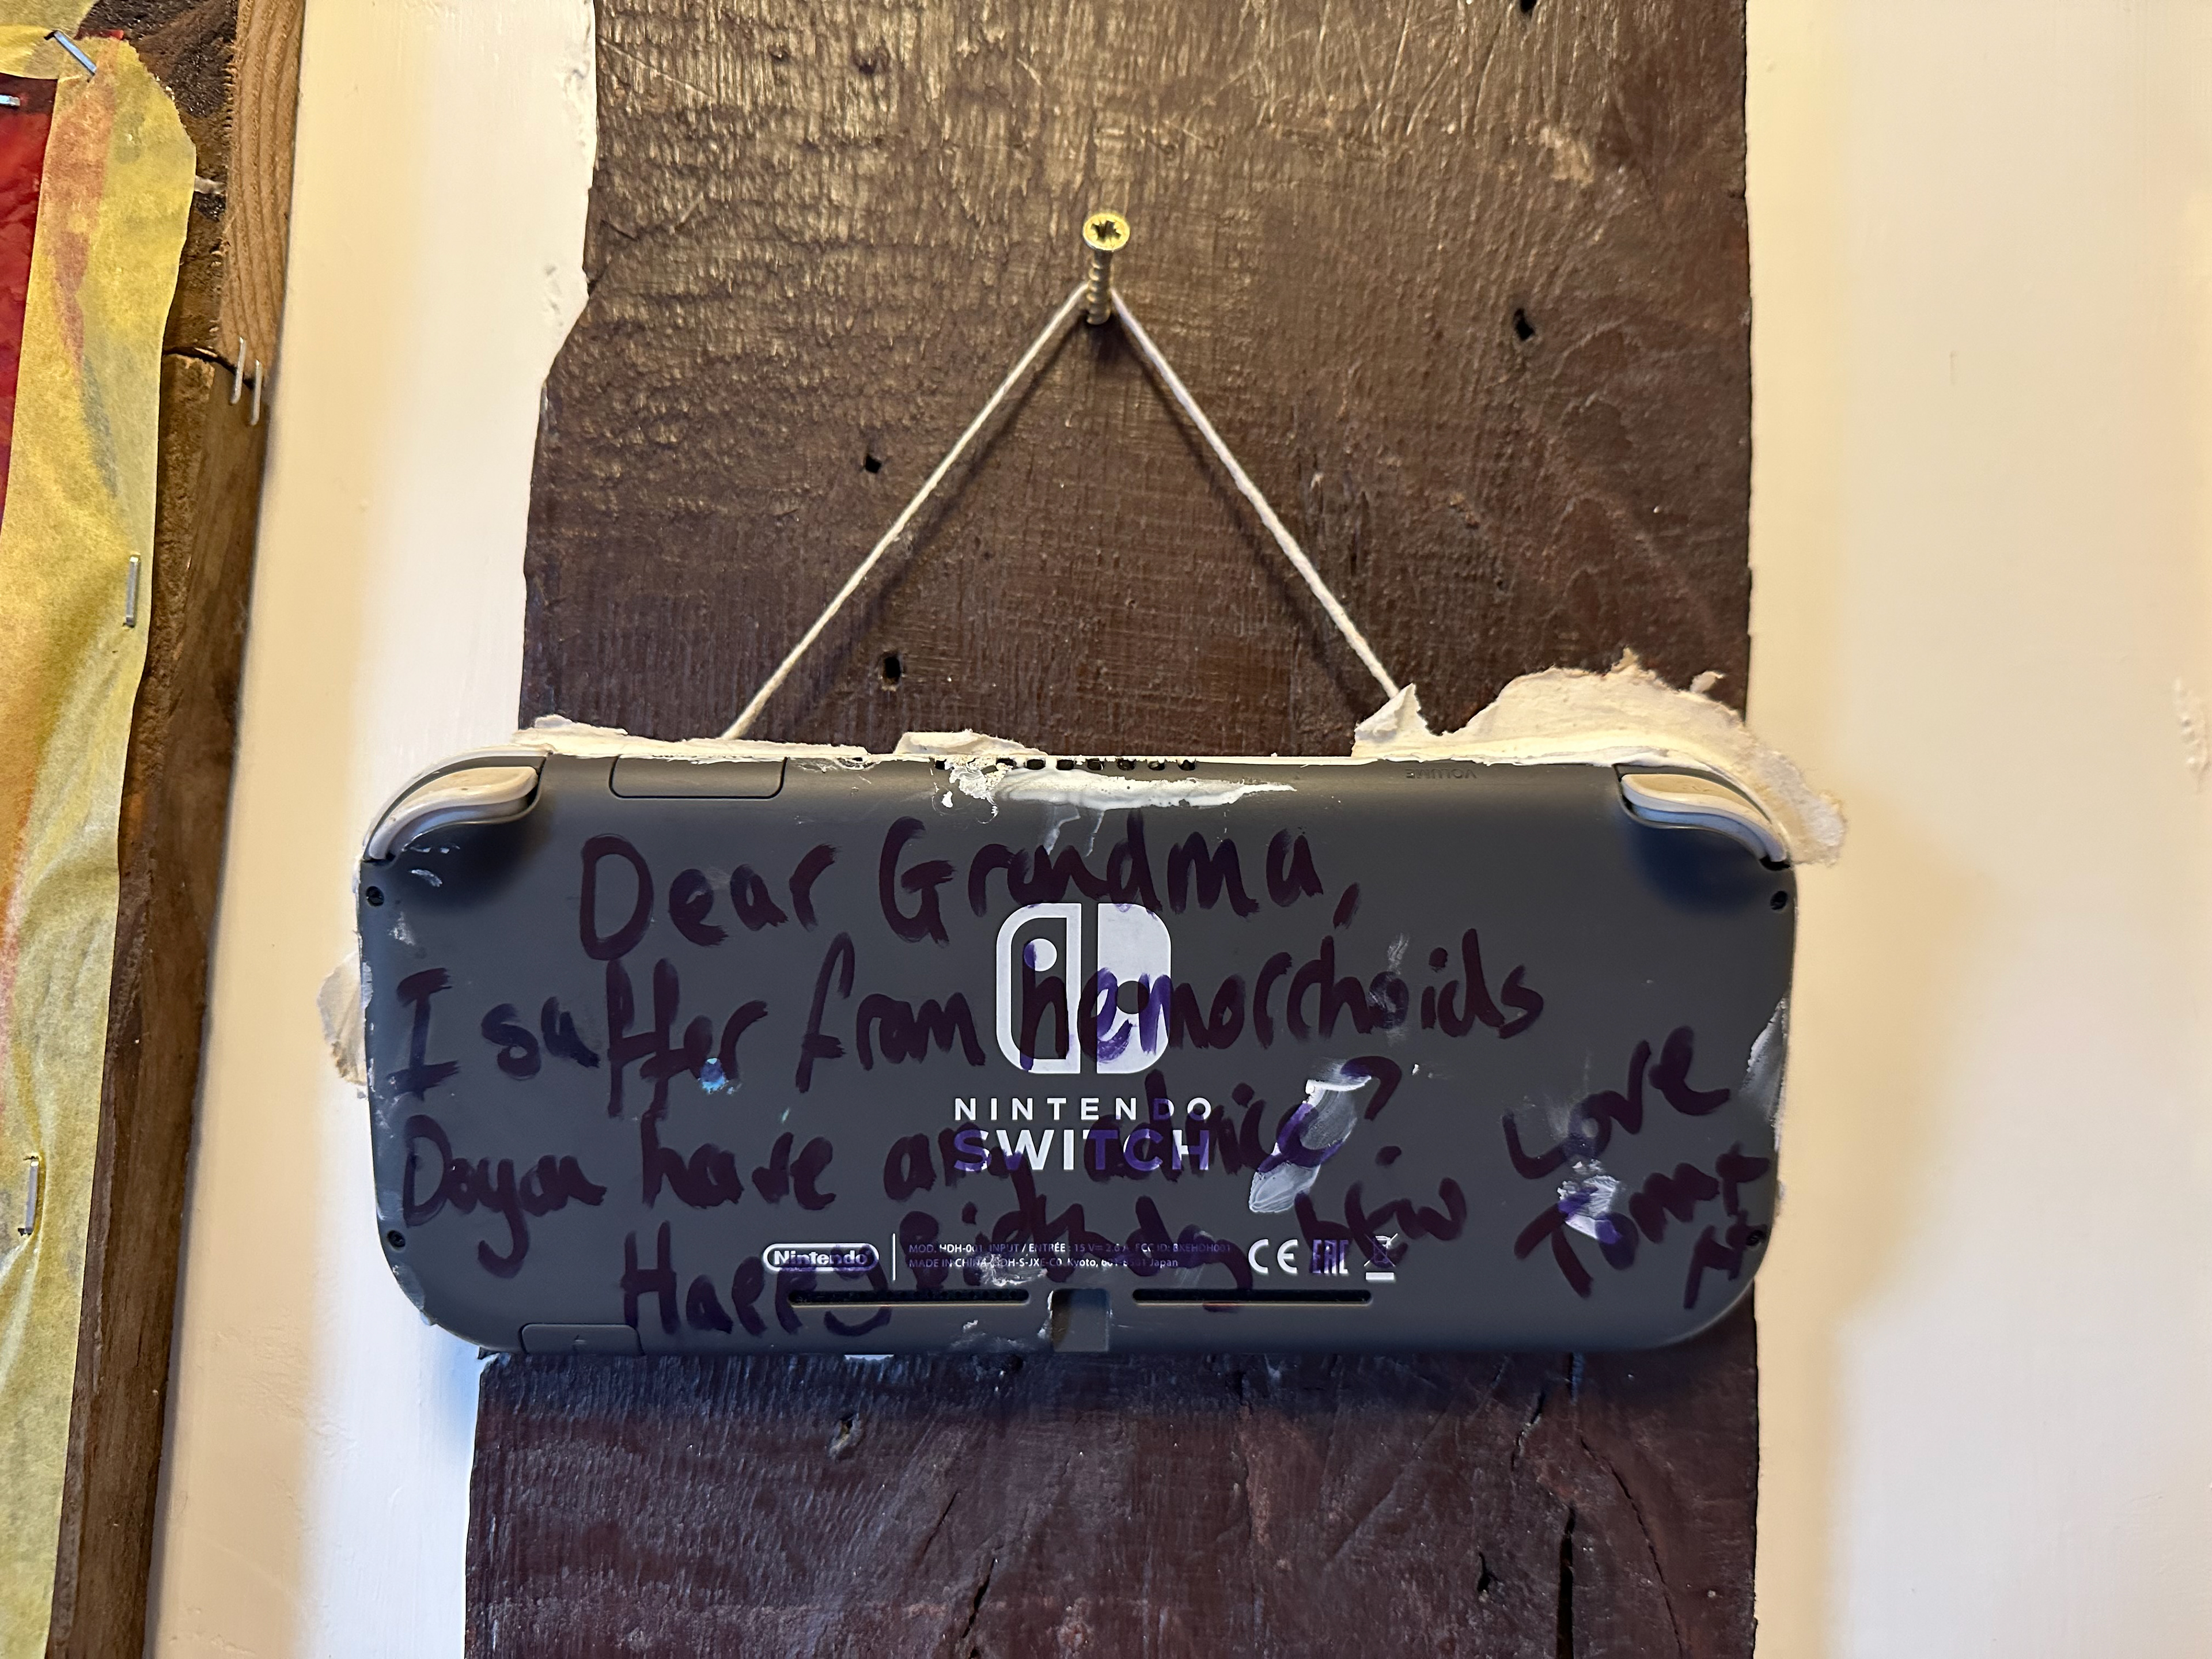 VOLUME
Dear Grandma,
I suffer from hemorrhoids
Do you have any advice?
Happy Birthday btw
Love
Tommy
NINTENDO
SWITCH
Nintendo
MOD. HDH-001 INPUT / ENTRÉE : 15 V⎓ 2.6 A FCC ID: BKEHDH001
MADE IN CHINA HDH-S-JXE-C0 Kyoto, 601-8501 Japan
CE EAC